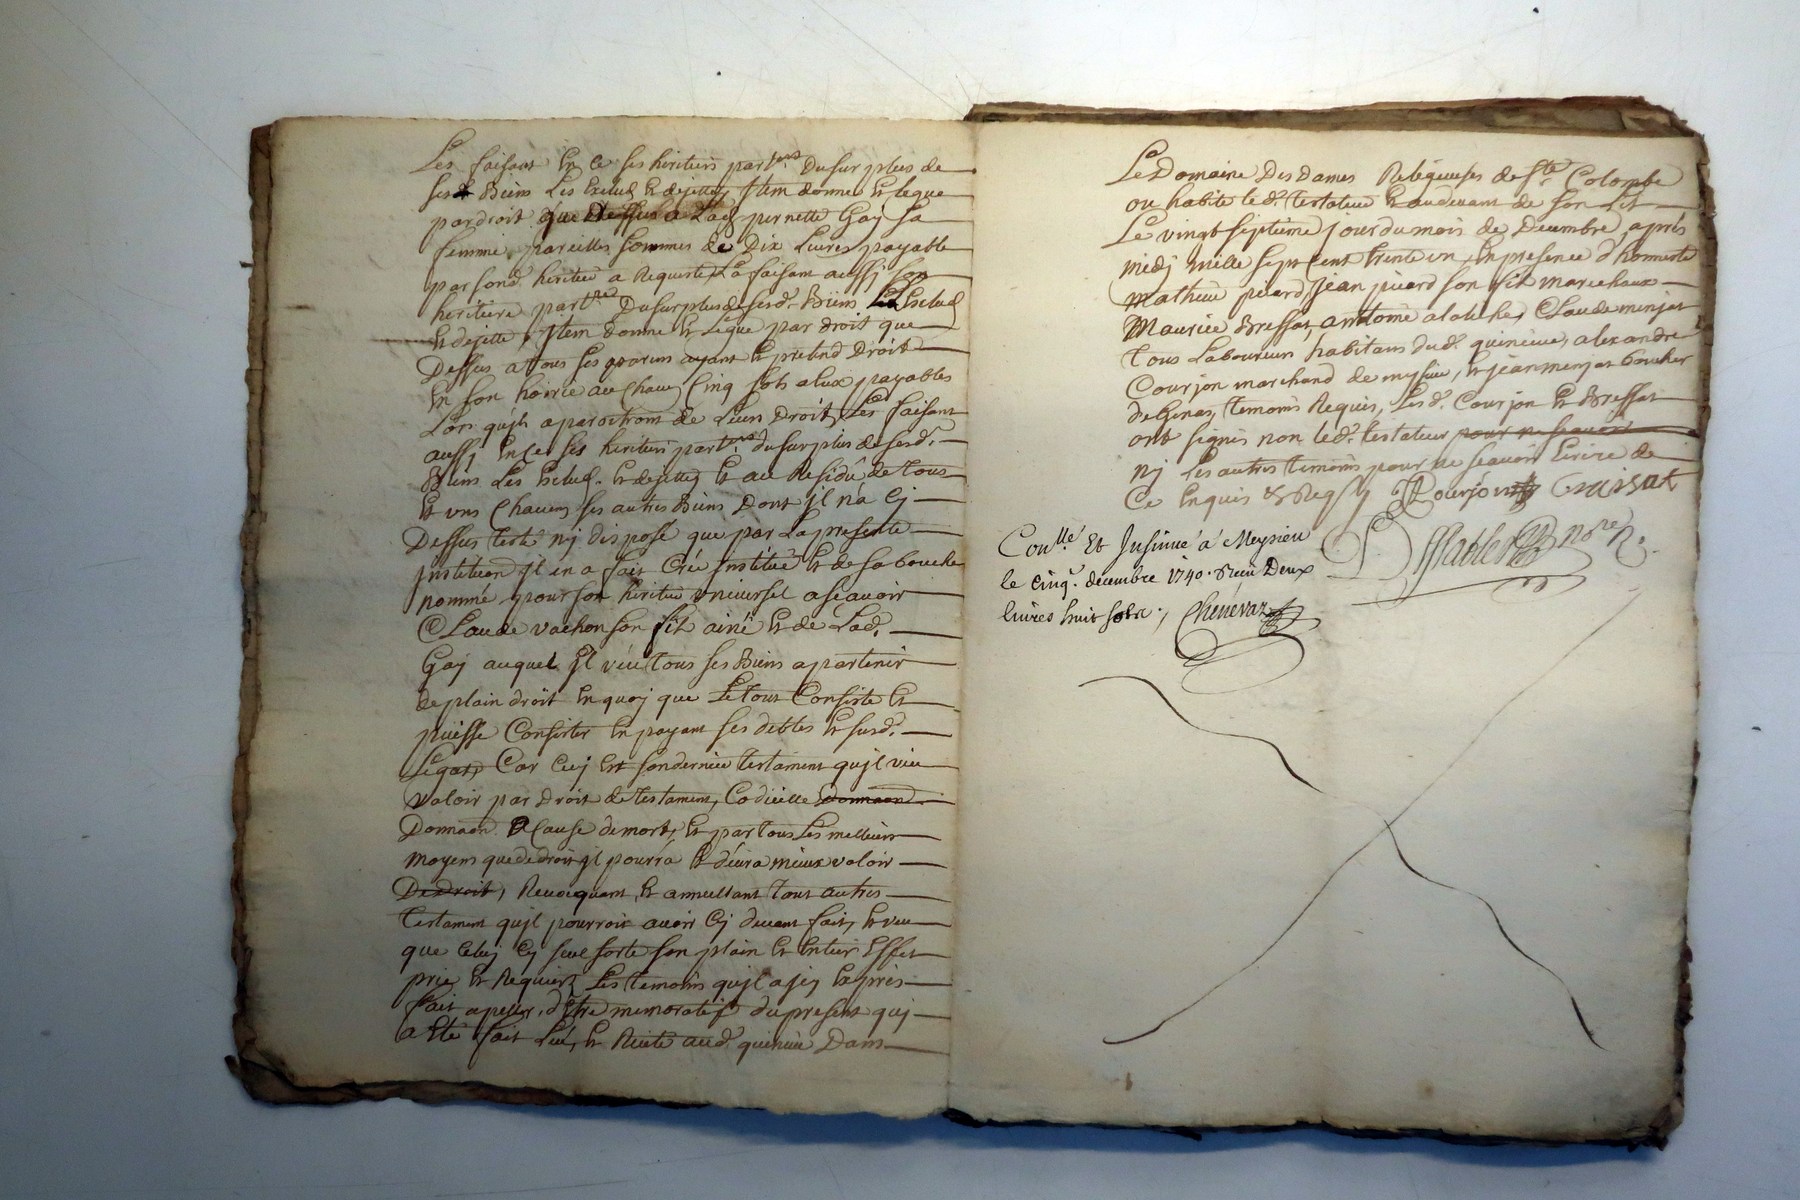 Les faisant en ce ses heritiers part.ers du surplus de
sesd. Biens les exclud et dejette, Item donne et legue
par droit que dessus a lad. pernette Gaj sa
femme pareilles sommes de Dix Livres payable
par sond. heritier a Requeste, La faisant aussj son
heritiere part.re Du surplus de sesd. Biens La Exclud
et dejette, Item donne et Legue par droit que
Dessus a tous ses parens ayant et pretend Droit
En son hoirie a un Chaun Cinq sols a eux payables
Lors qu'jls aparoitront de Leur Droit, Les faisant
aussj En ce ses heritiers part.ers du surplus de sesd.
Biens Les Exclud. et dejette et au Residû de tous
et uns Chacuns ses autres Biens Dont jl na Cj
Dessus testé nj disposé que par La presente
jnstitution jl en a fait Créé jnstitüé et de sa bouche
nommé pour son heritier universel a sçavoir
Claude vachon son fil ainé et de Lad.
Gaj auquel jl veu tous ses Biens apartenir
de plain droit En quoj que Le tout Consiste et
puisse Consister En payant ses debtes et susd.
Legats, Car Cecj est son dernier testament qu'jl veu
valoir par Droit de testament, Codicille donnaon
Donnaon a Cause de mort, et par tous Les meilleurs
moyens que de droit jl pourra et devra mieux valoir
De droit, Revocquant, et annullant tous autres
testament qu'jl pourroit avoir Cj devant fait, et veu
que Celuj Cy seul sorte son plain et Entier Effet
prie et Requiert Les temoins qu'jl a jcy Exprès
fait apeller, d'Etre memoratif du present quj
a Eté fait Lû, et Recité aud. quineüe Dans
Le Domaine Des Dames Religieuses de S.te Colombe
ou habite led. testateur et au devant de son Lit
Le vingt septieme jour du mois de Decembre, après
midj mille sept cent trente un, En presence d'honneste
Mathieu picard, Jean picard son fil marechaux
Maurice Bressat, antoine alatiche, Claude menjat
tous Laboureurs habitans dud. quineüe, alexandre
Courjon marchand de mysieu, et jean menjat boucher
de Genas, temoins Requis, Lesd. Courjon et Bressat
ont signés non led. testateur pour ne sçavoir
nj Les autres temoins pour ne sçavoir Ecrire de
Ce Enquis et Reqs. / Courjon
Con.llé Et Insinué à Meysieu
le cinq. decembre 1740. Reçu Deux
livres huit sols. / Chenevaz